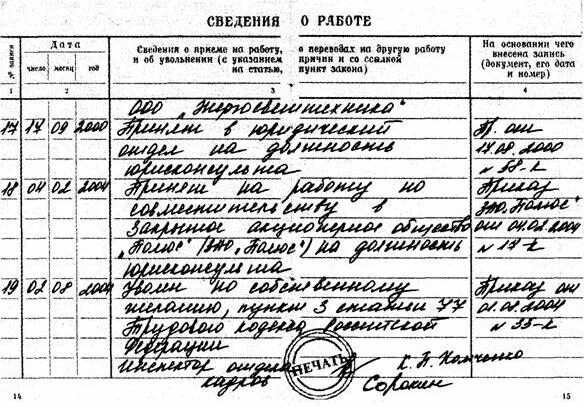 СВЕДЕНИЯ О РАБОТЕ
№ записи
Дата
число
месяц
год
Сведения о приеме на работу, о переводах на другую работу
и об увольнении (с указанием причин и со ссылкой
на статью, пункт закона)
На основании чего
внесена запись
(документ, его дата
и номер)
1 2 3 4
ООО "Энергосветтехника"
17 17 09 2000 Принят в юридический Пр. от
отдел на должность 17.08.2000
юрисконсульта № 58-к
18 04 02 2004 Принят на работу по Приказ
совместительству в ЗАО "Полюс"
Закрытое акционерное общество от 04.02.2004
"Полюс" (ЗАО "Полюс") на должность № 17-к
юрисконсульта
19 02 08 2004 Уволен по собственному Приказ от
желанию, пункт 3 статьи 77 01.08.2004
Трудового кодекса Российской № 33-к
Федерации
Инспектор отдела К. П.
кадров Сорокин
ПЕЧАТЬ
14 15